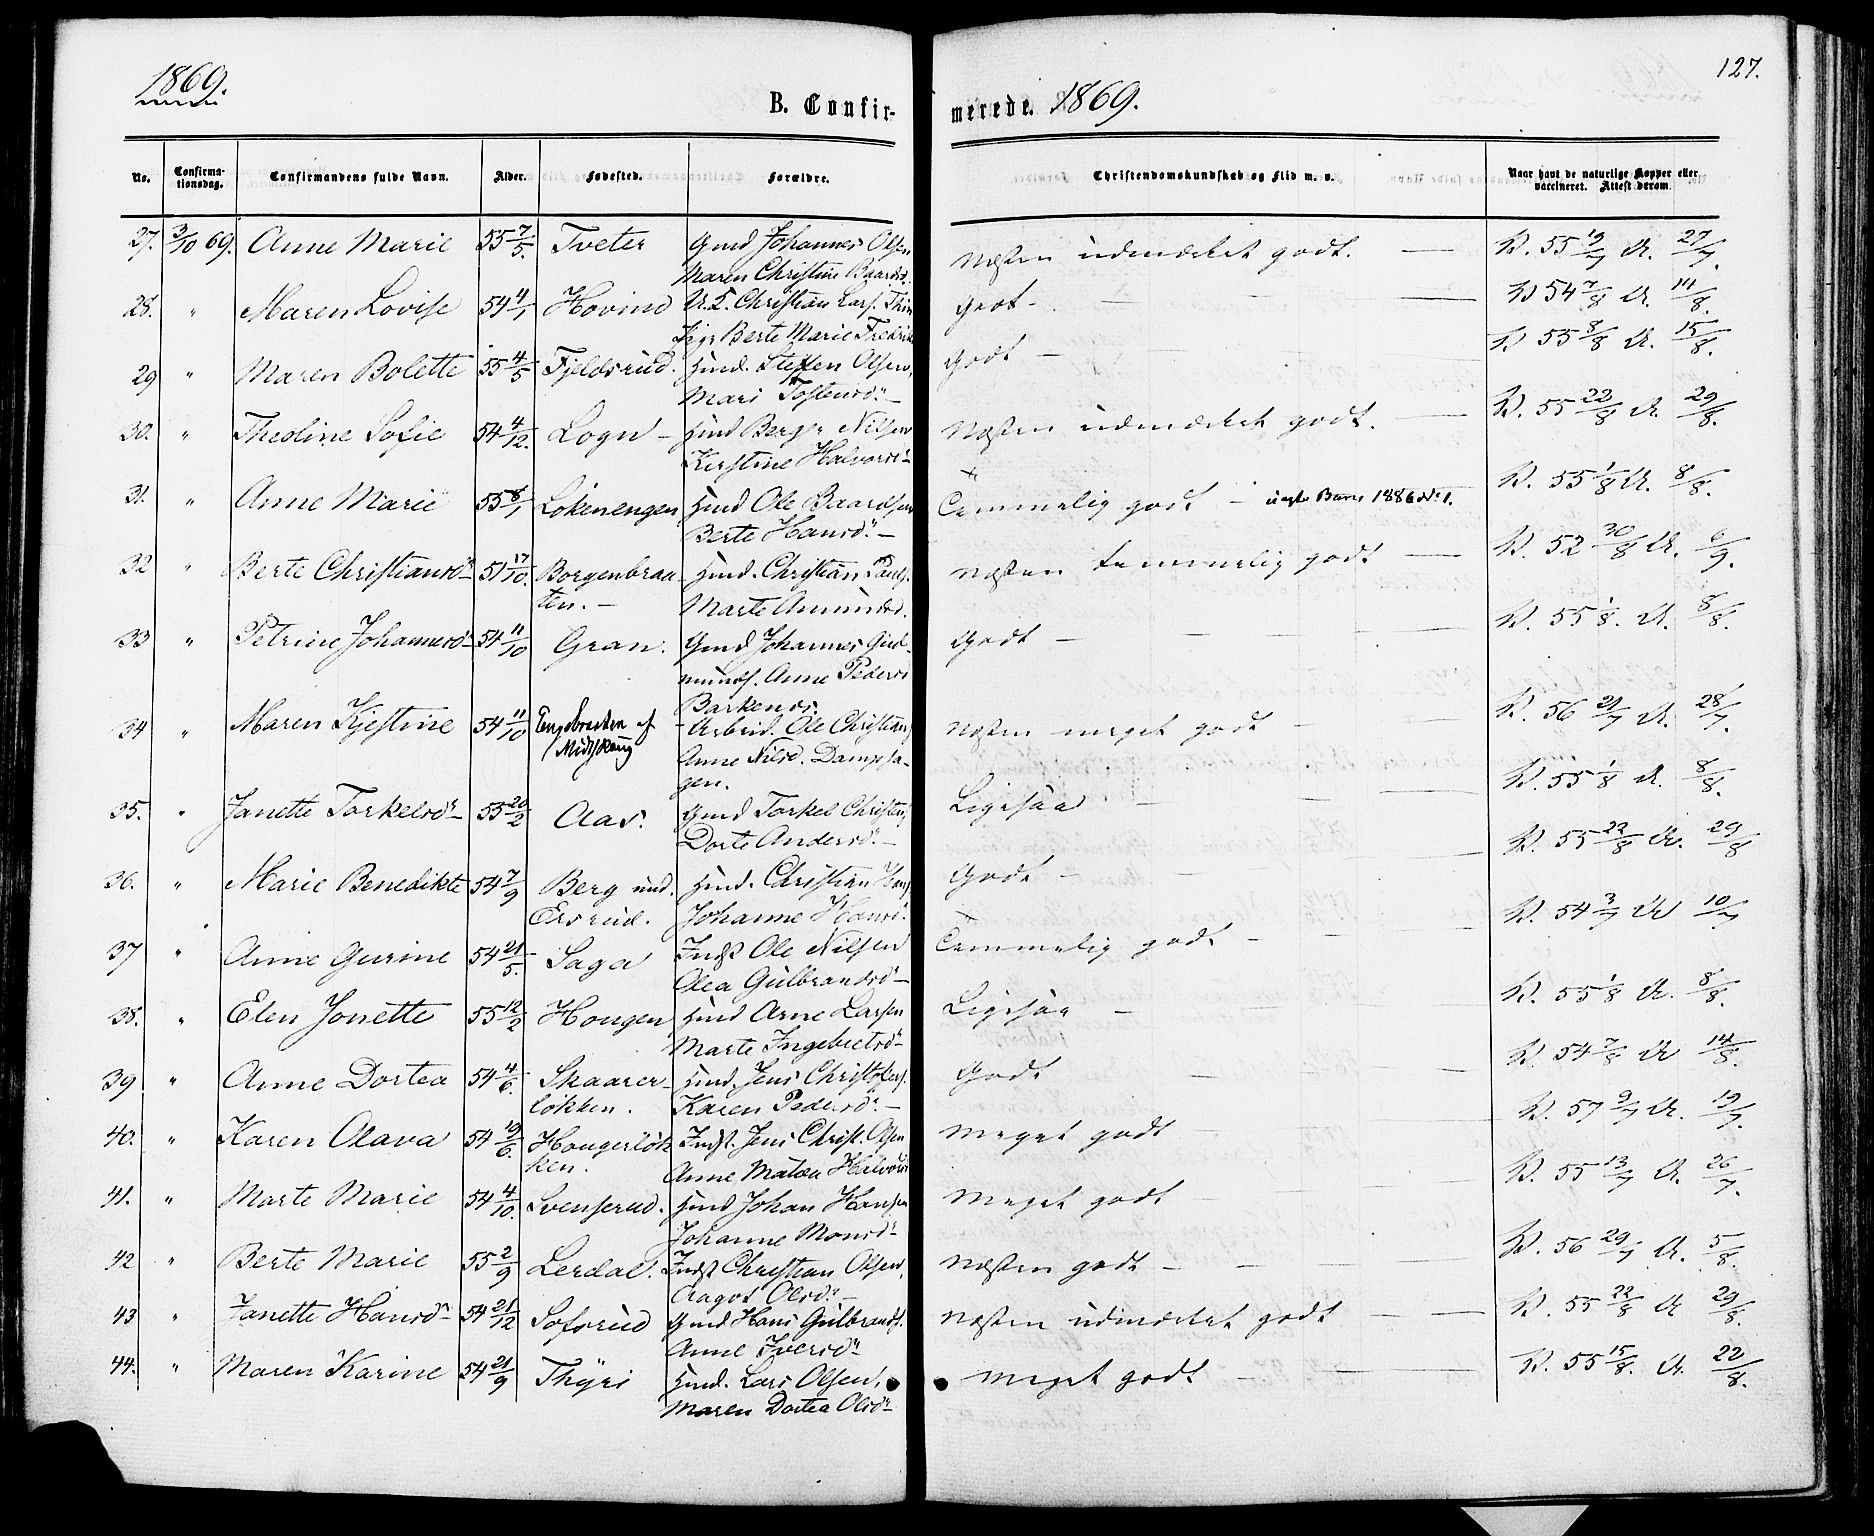 1869.
B. Confir-
No. Confirma-tionsdag. Confirmandens fulde Navn. Alder. Fødested. Forældre.
27. 3/10 69. Anne Marie 55 7/5. Tveter Gmd Johannes Olsen
Maren Christine Baardsd.
28. " Maren Lovise 54 4/1 Hovind U. F. Christian Lars.
Pige Berte Marie Fredriks
29 " Maren Bolette 55 4/5 Fjeldsrud. Husmd. Steffen Olsen,
Mari Tostensdr. —
30. " Theoline Sofie 54 4/12. Logn — Husmd Berger Nilsen
Kirstine Halvorsdr —
31. " Anne Marie 55 8/1 Lökenengen Husmd Ole Baardsen
Berte Hansdr. —
32 " Berte Christiansdr 51 17/10. Borgenbraa Husmd. Christian Pauls.
ten. — Marte Amundsd.
33 " Petrine Johannesdr 54 11/10 Gran. Gmd Johannes Gud-
munds. Anne Pedersd
Barkenæs.
34 " Maren Kjestine 54 11/10 Engebraaten af - Arbeid. Ole Christians
Midtskoug Anne Nilsd. Dampsa-
gen.
35. " Janette Torkelsdr — 55 20/2 Aas. Gmd Torkel Christens,
Dorte Andersdr. —
36. " Marie Benedikte 54 7/9 Berg und. Husmd. Christian Hans
Ersrud. Johanne Hansdr.
37 " Anne Gurine 54 21/5. Saga Indst Ole Nilsen
Olea Gulbrandsdr —
38. " Elen Jonette 55 12/2 Hougen Husmd Arne Larsen
Marte Ingebretsdr —
39 " Anne Dortea 54 4/6. Skaarer- Husmd. Jens Christofers.
lökken. Karen Pedersdr. —
40. " Karen Olava 54 19/6. Hougerlök Indst. Jens Christ. Olsen
ken. Anne Matea Halvorsd
41. " Marte Marie 54 4/10. Svenserud. Husmd Johan Hansen
Johanne Monsdr —
42 " Berte Marie 55 2/9 Lerdal. Indst Christian Olsen,
Aagot Olsdr. —
43 " Janette Hansdr — 54 21/12 Sofsrud Gmd Hans Gulbrands.
Anne Iversdr
44. " Maren Karine 54 21/9 Thyri Husmd. Lars Olsen,
Maren Dortea Olsdr —
127.
merede. 1869.
Christendomskundskab og Flid m. v. Naar havt de naturlige Kopper eller vaccineret. Attest derom.
Næsten udmærket godt. — V. 55 19/7 A. 27/7.
Godt — V 54 7/8 A. 14/8.
Godt — V 55 8/8 A. 15/8.
Næsten udmærket godt. — V. 55 22/8 A. 29/8.
Temmelig godt — uægte Barn 1886 No 1. V. 55 1/8 A. 8/8.
Næsten temmelig godt — V. 52 30/8 A. 6/9.
Godt — V. 55 1/8. A. 8/8.
Næsten meget godt — V. 56 21/7 A. 28/7.
Ligesaa — V. 55 1/8 A. 8/8.
Godt — V. 55 22/8 A. 29/8
Temmelig godt — V. 54 3/7 A 10/7
Ligesaa — V. 55 1/8 A. 8/8.
Godt — V. 54 7/8 A 14/8.
Meget godt — V. 57 9/7 A. 19/7.
Meget godt V. 55 13/7 A. 26/7.
Næsten godt — V. 56 29/7 A. 5/8.
Næsten udmærket godt — V. 55 22/8 A 29/8.
Meget godt — V. 55 15/8. A. 22/8.